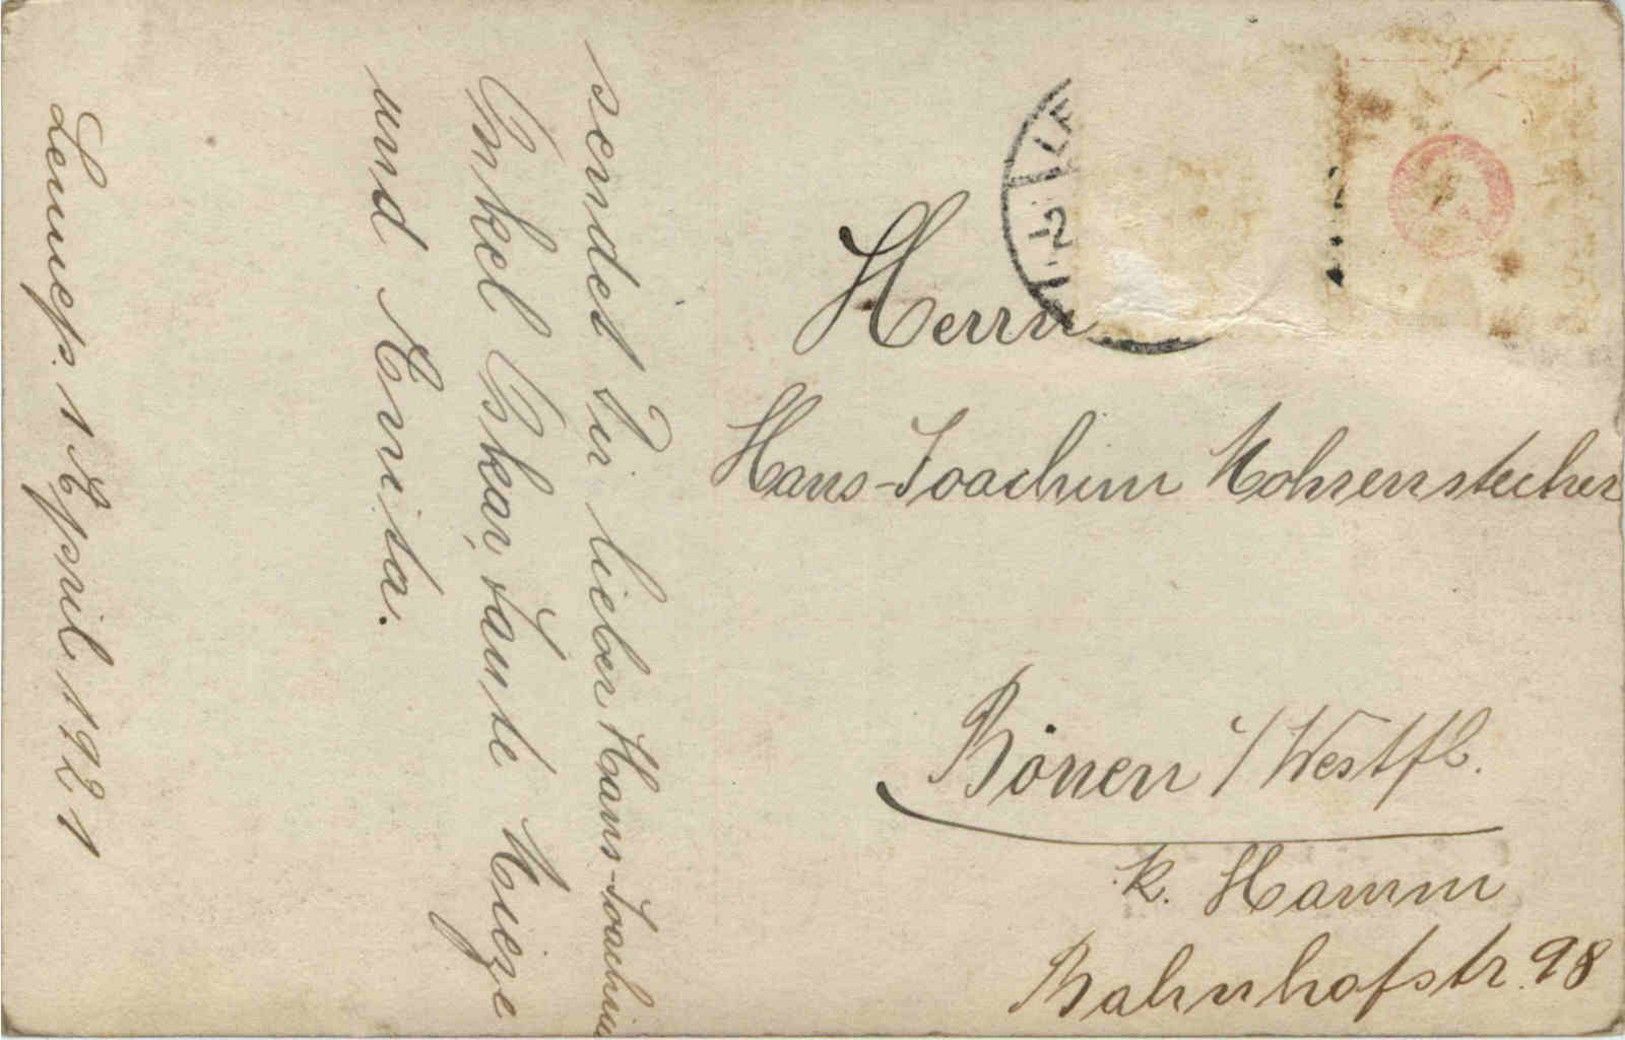 sendet Dir lieber Hans-Joachim
Onkel Oskar, Tante Mieze
und Anita.
Lennep. 1 April 1921
Herrn
Hans-Joachim Mohrenstecher
Bönen i/Westfl.
k. Hamm
Bahnhofstr. 98
LE